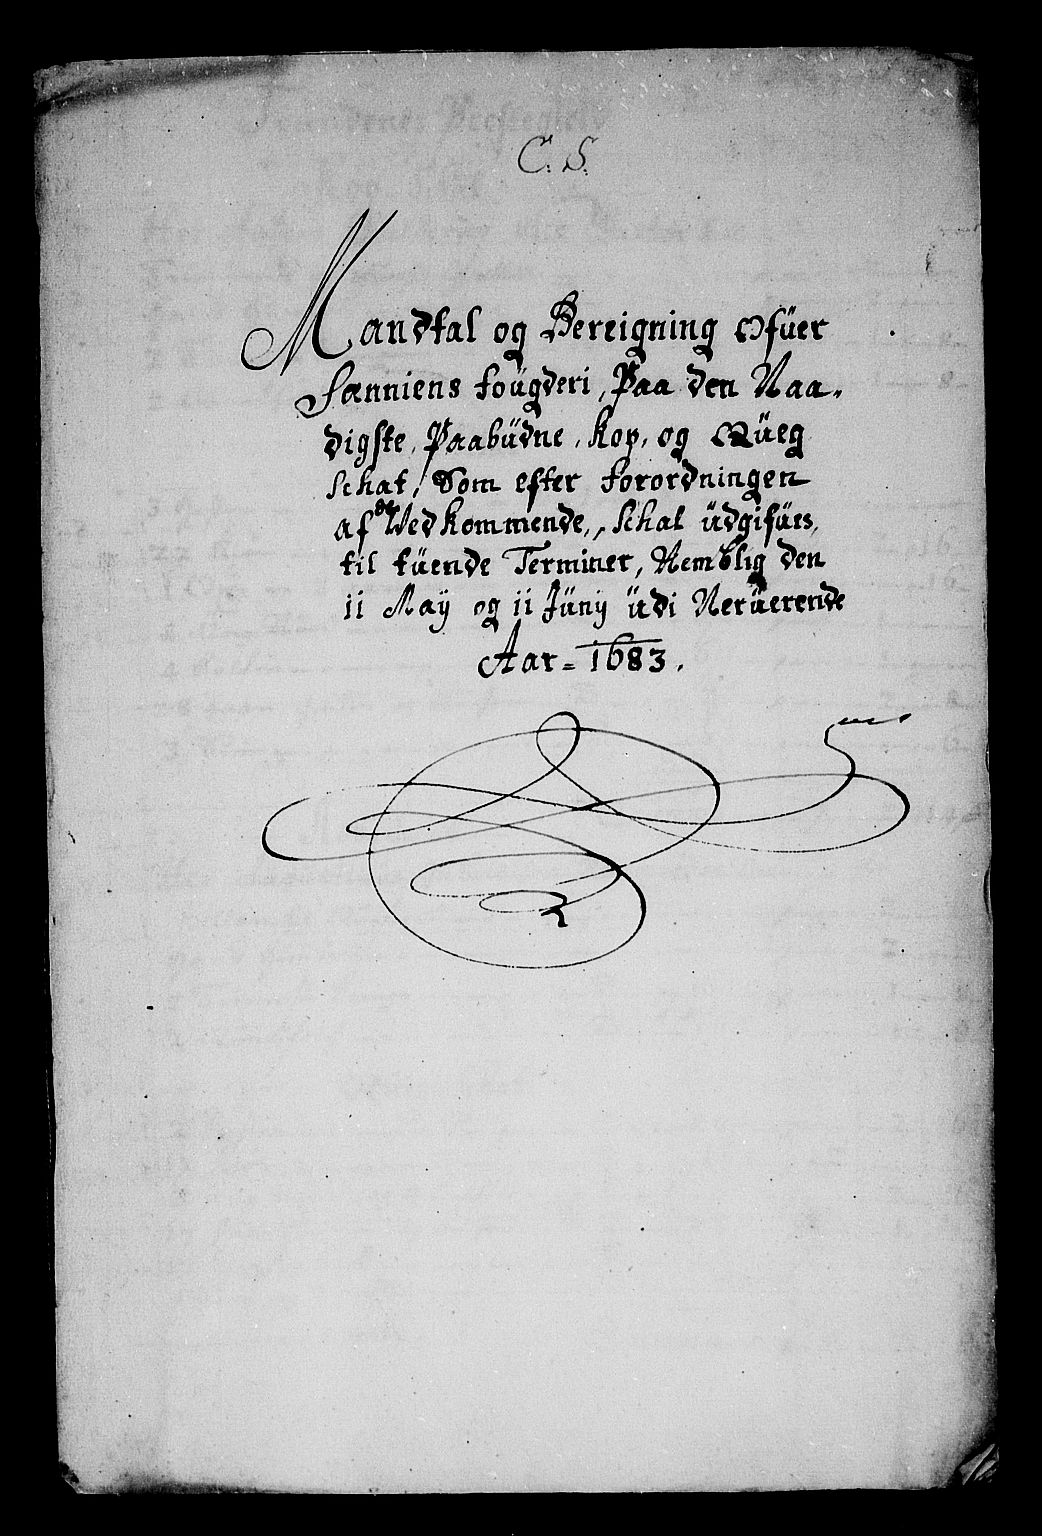 C. S.
Mandtal og Bereigning Ofüer
Sænniens fougderi, Paa den Naa-
digste, Paabüdne, Kop, og Qüeg
schat, Som efter forordningen
af de Vedkommende, schal üdgifües,
til tüende Terminer, Nemblig den
11 Maÿ og 11 Jünÿ üdi Nerüerende
Aar = 1683.